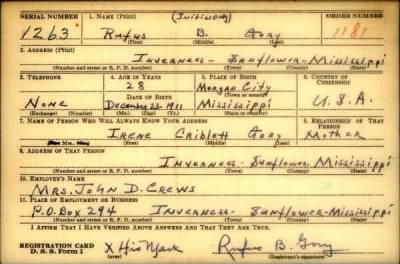 SERIAL NUMBER 1. NAME (Print) (Initial only) ORDER NUMBER
1263 Rufus B. Gory 1181
(First) (Middle) (Last)
2. ADDRESS (Print)
Inverness - Sunflower - Mississippi
(Number and street or R. F. D. number) (Town) (County) (State)
3. TELEPHONE 4. AGE IN YEARS 5. PLACE OF BIRTH 6. COUNTRY OF CITIZENSHIP
28 Morgan City
DATE OF BIRTH (Town or county)
None December 23-1911 Mississippi U.S.A.
(Exchange) (Number) (Mo.) (Day) (Yr.) (State or country)
7. NAME OF PERSON WHO WILL ALWAYS KNOW YOUR ADDRESS 8. RELATIONSHIP OF THAT PERSON
Irene Criblett Gory Mother
(Mr., Mrs., Miss) (First) (Middle) (Last)
9. ADDRESS OF THAT PERSON
Inverness - Sunflower Mississippi
(Number and street or R. F. D. number) (Town) (County) (State)
10. EMPLOYER'S NAME
Mrs. John D. Crews
11. PLACE OF EMPLOYMENT OR BUSINESS
P.O. Box 294 Inverness - Sunflower - Mississippi
(Number and street or R. F. D. number) (Town) (County) (State)
I AFFIRM THAT I HAVE VERIFIED ABOVE ANSWERS AND THAT THEY ARE TRUE.
REGISTRATION CARD X His Mark Rufus B. Gory
D. S. S. Form 1 (over) (Registrant's signature)